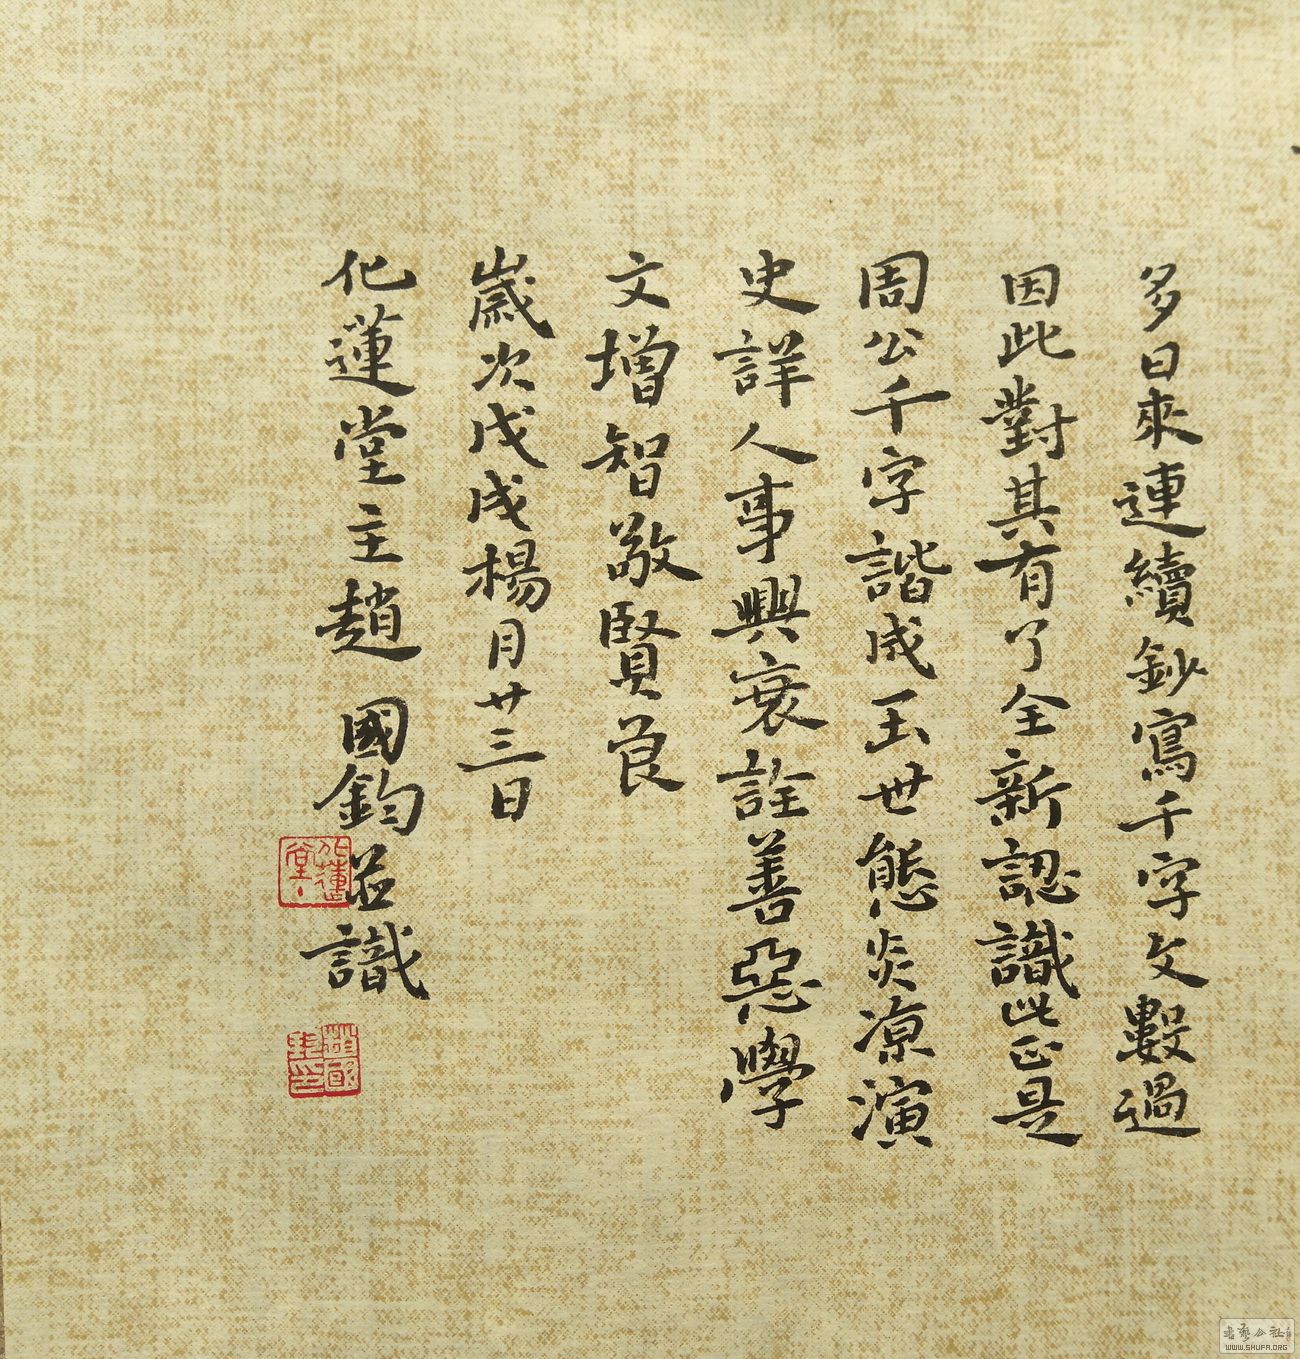 多日來連續鈔寫千字文數過
因此對其有了全新認識此正是
周公千字諧成玉世態炎凉演
史詳人事興衰詮善惡學
文增智敬賢良
歲次戊戌楊月廿三日
化蓮堂主趙國鈞并識
化蓮堂
書藝公社
WWW.SHUFA.ORG